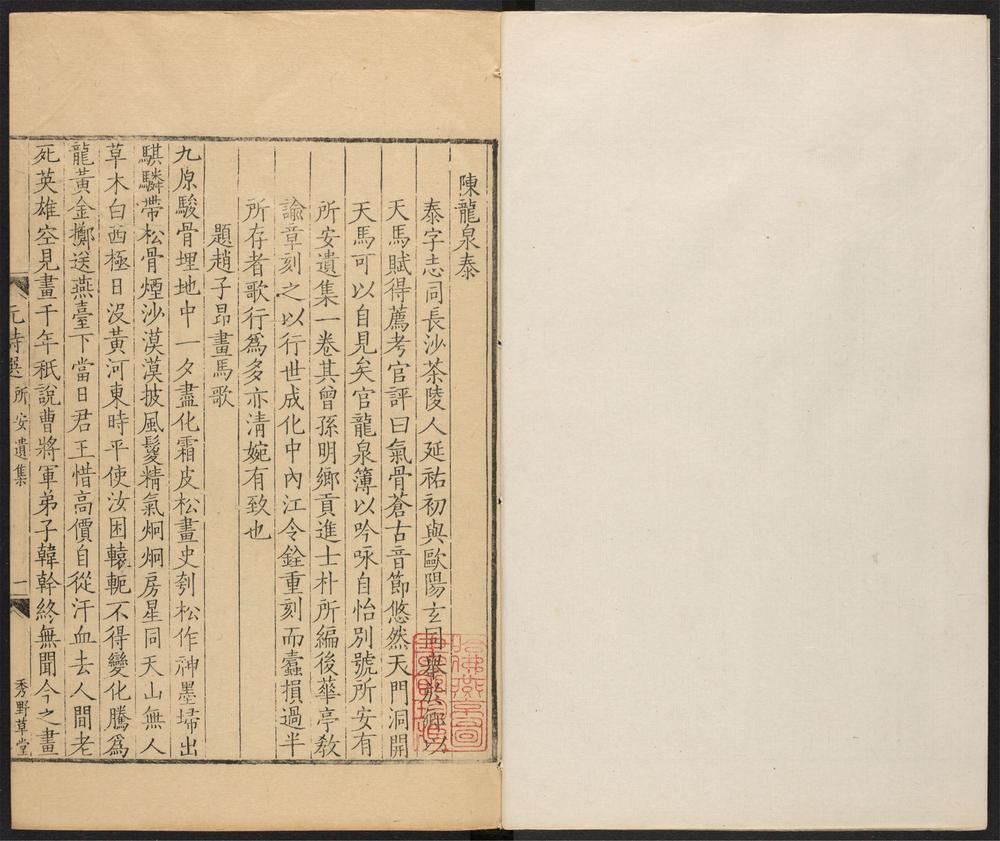 陳龍泉泰
泰字志同長沙茶陵人延祐初與歐陽玄同舉於鄉以
天馬賦得薦考官評曰氣骨蒼古音節悠然天門洞開
天馬可以自見矣官龍泉簿以吟咏自怡別號所安有
所安遺集一卷其曾孫明鄉貢進士朴所編後華亭教
諭章刻之以行世成化中內江令銓重刻而蠹損過半
所存者歌行爲多亦淸婉有致也
題趙子昂畫馬歌
九原駿骨埋地中一夕盡化霜皮松畫史刳松作神墨埽出
騏驎帶松骨煙沙漠漠披風鬉精氣炯炯房星同天山無人
草木白西極日沒黃河東時平使汝困轅軛不得變化騰爲
龍黃金擲送燕臺下當日君王惜高價自從汗血去人間老
死英雄空見畫千年秖說曹將軍弟子韓幹終無聞今之畫
元詩選 所安遺集 一 秀野草堂
哈佛燕京圖
書館珍藏